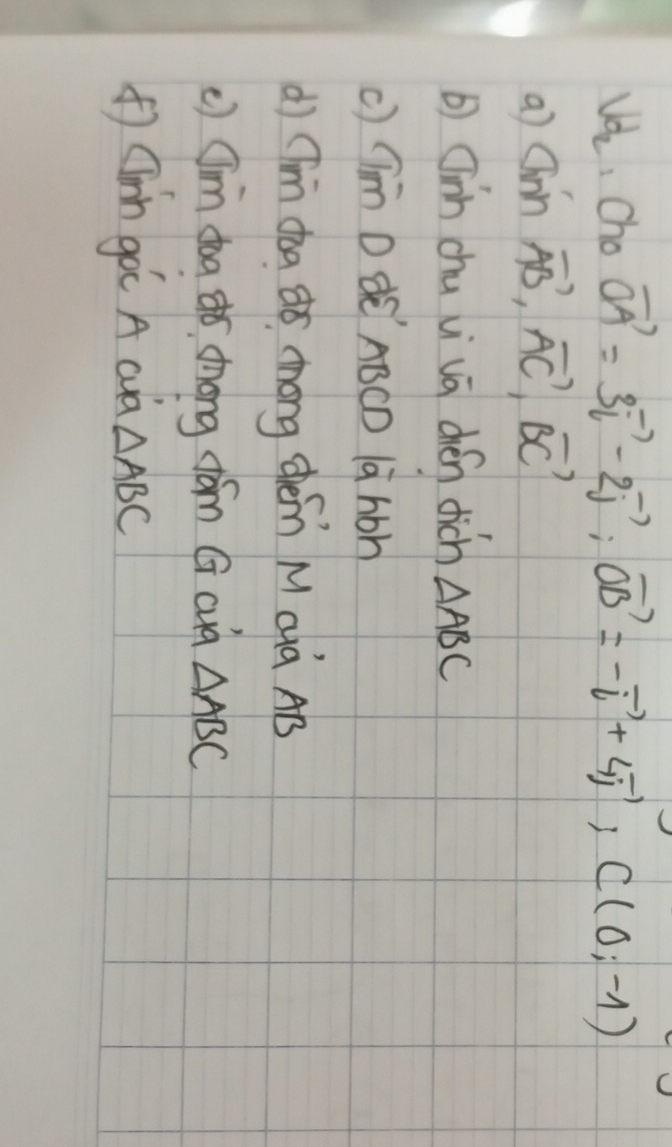 Vd2. Cho OA→ = 3i→ - 2j→ ; OB→ = -i→ + 4j→ ; C(0 ; -1)
a) Tính AB→, AC→, BC→
b) Tính chu vi và diện tích ΔABC
c) Tìm D để ABCD là hbh
d) Tìm toạ độ trung điểm M của AB
e) Tìm toạ độ trọng tâm G của ΔABC
f) Tính góc A của ΔABC